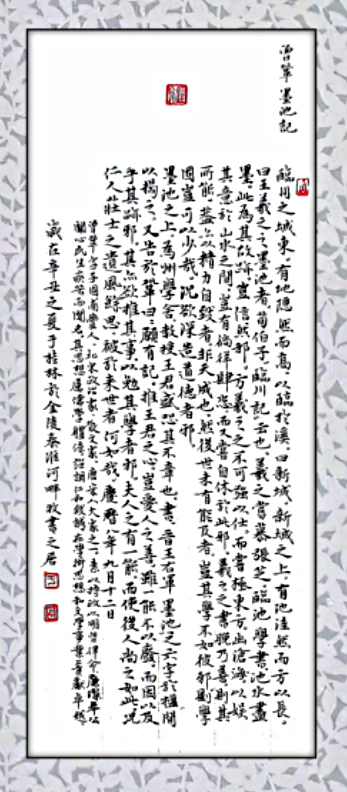 曾鞏墨池記
臨川之城東，有地隱然而高，以臨於溪，曰新城。新城之上，有池洼然而方以長，
曰王羲之之墨池者，荀伯子臨川記云也。羲之嘗慕張芝，臨池學書，池水盡
墨，此為其故跡，豈信然邪。方羲之之不可強以仕，而嘗極東方，出滄海，以娛
其意於山水之間，豈有徜徉肆恣，而又嘗自休於此邪。羲之之書晚乃善，則其
所能，蓋亦以精力自致者，非天成也。然後世未有能及者，豈其學不如彼邪。則學
固豈可以少哉，況欲深造道德者邪。
墨池之上，為州學舍。教授王君盛恐其不章也，書晉王右軍墨池之六字於楹間
以揭之，又告於鞏曰，願有記。推王君之心，豈愛人之善，雖一能不以廢，而因以及
乎其跡邪。其亦欲推其事以勉其學者邪。夫人之有一能，而使後人尚之如此，況
仁人莊士之遺風餘思，被於來世者何如哉。慶曆八年九月十二日
曾鞏字子固南豐人，北宋政治家，散文家，唐宋八大家之一
關心民生疾苦而聞名，其思想屬儒學
歲在辛丑之夏于桂林於金陵秦淮河畔牧書之居